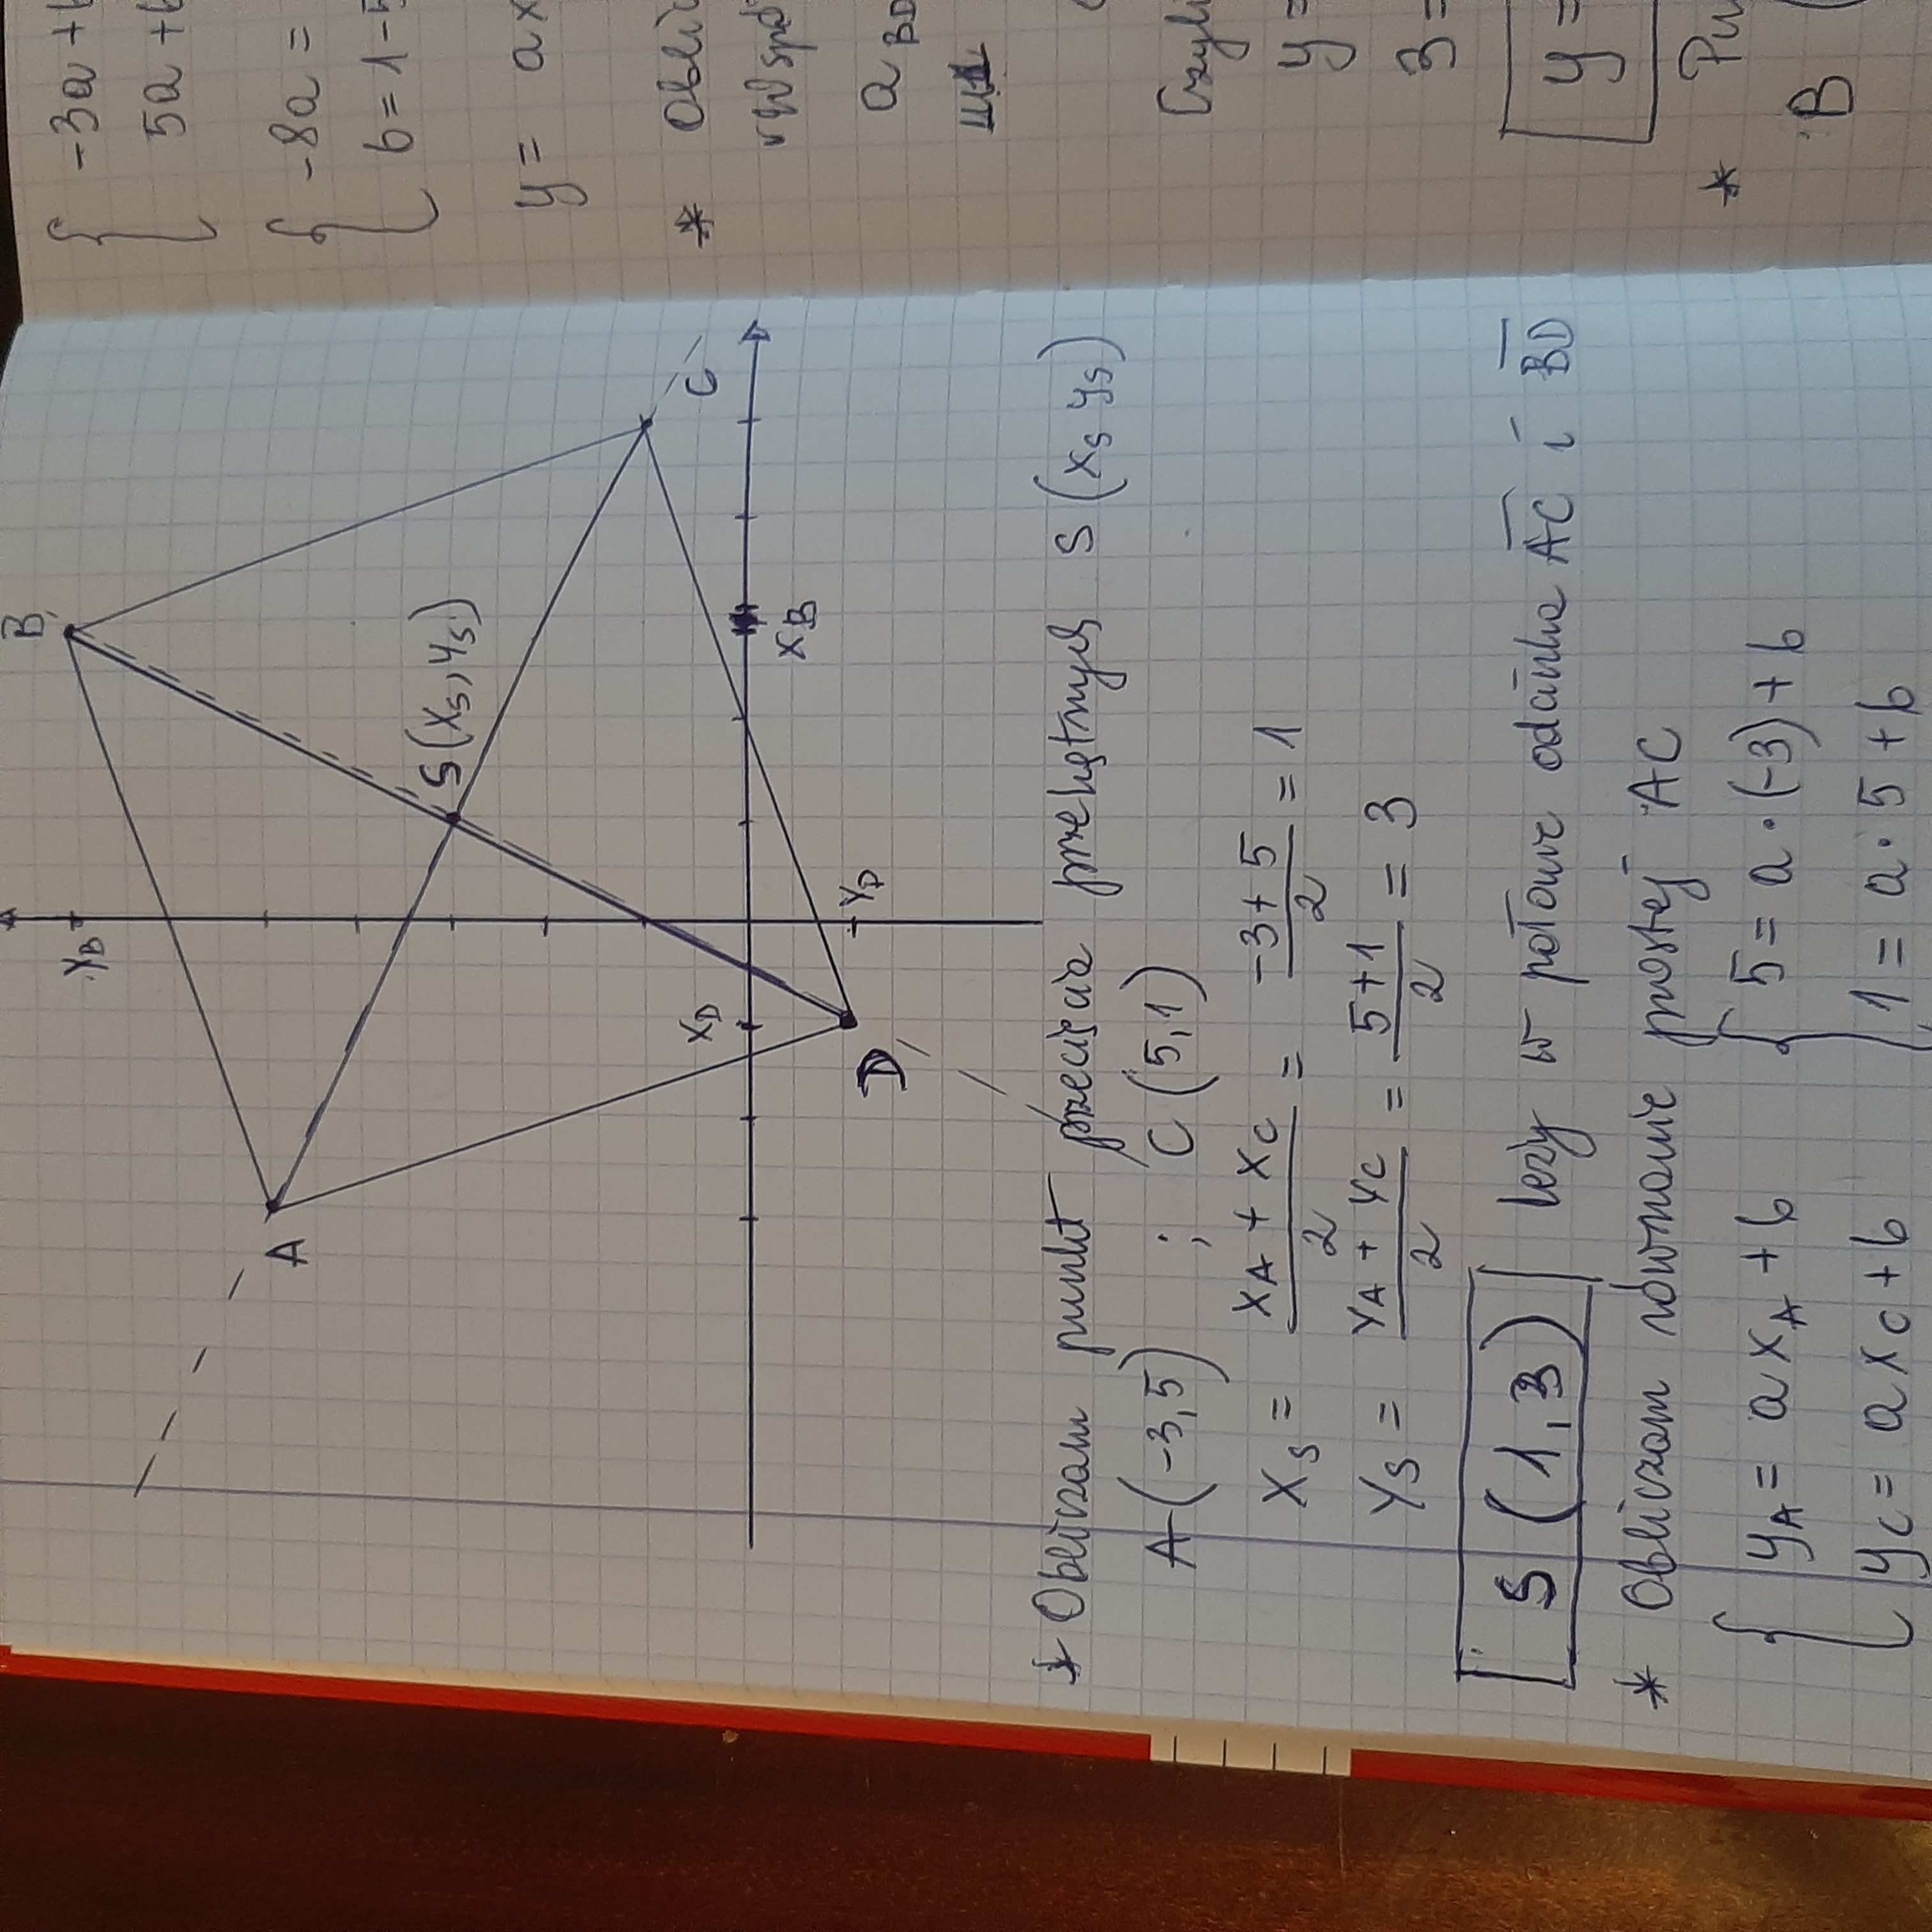 B
Y_B
S(x_S, y_S)
A
C
X_D
X_B
Y_D
D
* Obliczam punkt przecięcia przekątnych S(x_S y_S)
A(-3,5) ; C(5,1)
X_S = \frac{X_A + X_C}{2} = \frac{-3+5}{2} = 1
Y_S = \frac{Y_A + Y_C}{2} = \frac{5+1}{2} = 3
S(1,3) leży w połowie odcinka \overline{AC} i \overline{BD}
* Obliczam równanie prostej AC
{ y_A = ax_A + b { 5 = a·(-3)+b
y_C = ax_C + b 1 = a·5+b
{ -3a +
5a +
{ -8a =
b = 1-5
y = ax
* Oblic
współ
a_BD
Czyli
y =
3 =
y =
* Pu
B (